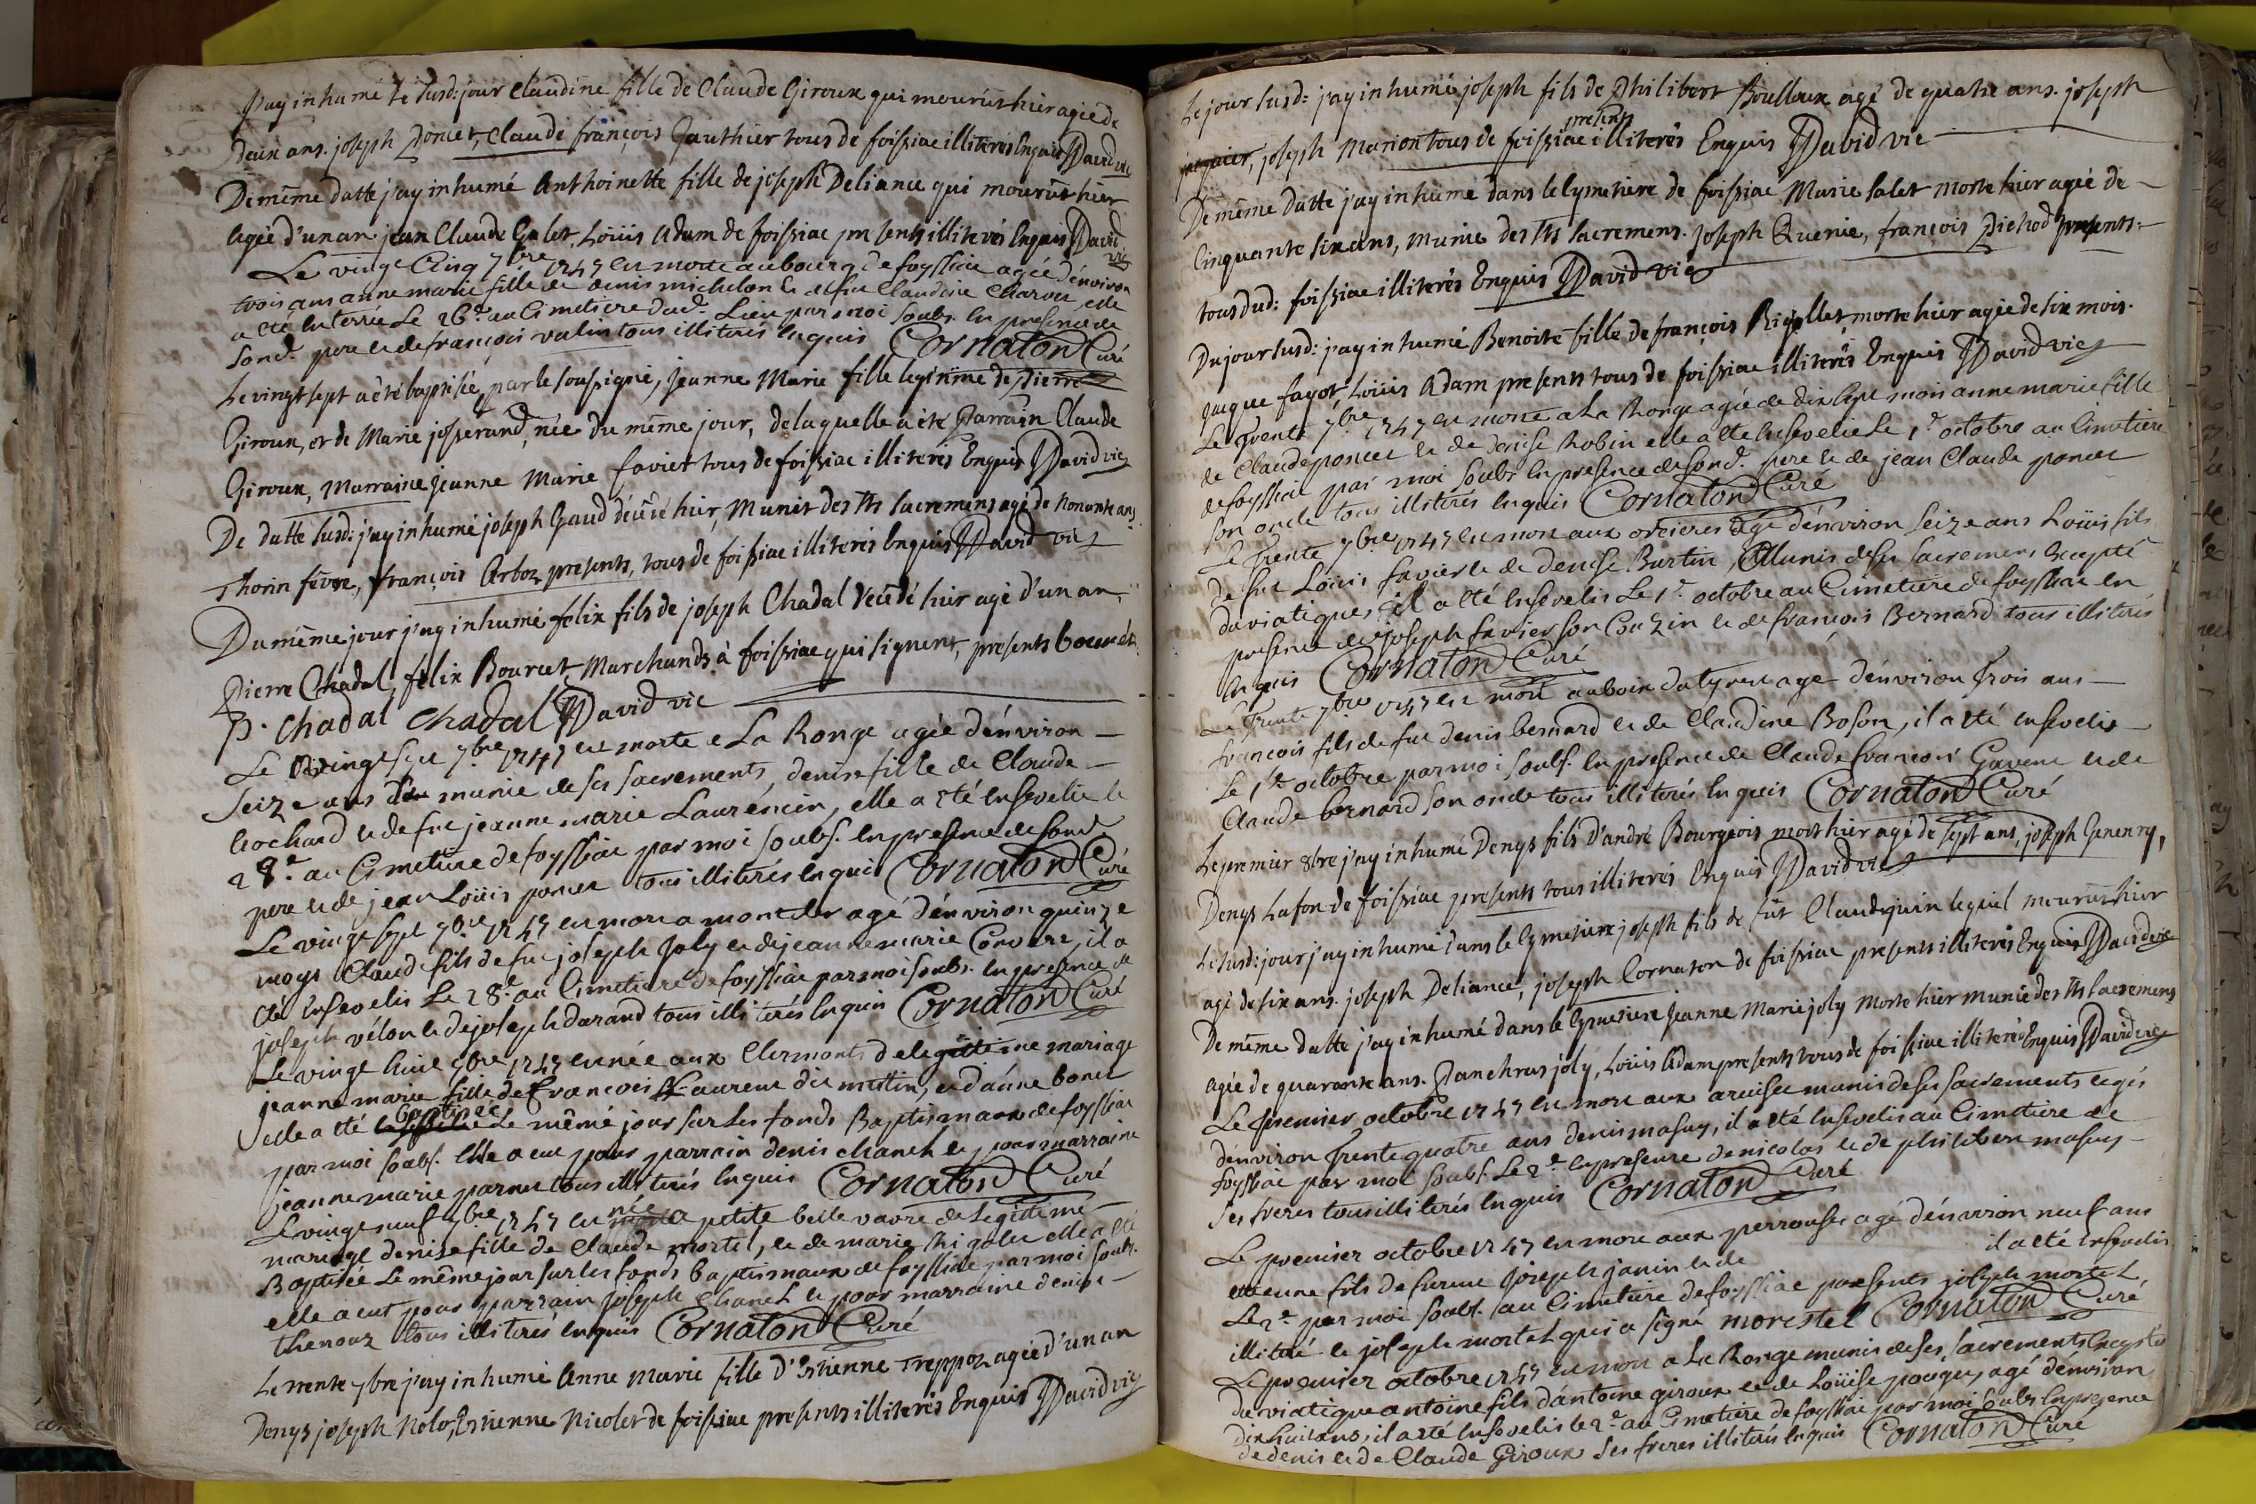 j'ay inhumé le susd: jour Claudine fille de Claude Giroux qui mourut hier agée de
deux ans. joseph Poncet, Claude françois Gauthier tous de foissiac illiterés Enquis David vic
De même datte j'ay inhumé Anthoinette fille de joseph Deliance qui mourut hier
agée d'un an jean Claude Galet, Loüis Adam de foissiac presents illiterés Enquis David
vic
Le vingt Cinq 7bre 1747 est morte au bourg de foyssiac agée d'environ
trois ans anne marie fille de denis michelon et de fue Claudine Charvet, elle
a été Enterrée Le 26e au Cimetiere dud. Lieu par moi soubs. En presence de
sond. pere et de françois vulin tous illiterés Enquis Cornaton Curé
Le vingt sept a été baptisée par le soussigné, Jeanne Marie fille legitime de Pierre
Giroux, et de Marie josserand, née du même jour, de laquelle a été Parrain Claude
Giroux, Marraine Jeanne Marie favier tous de foissiac illiterés Enquis David vic
De datte susd: j'ay inhumé joseph Gaud décédé hier, Munit des Sts sacremens agé de Nonante ans
Thorin févre, françois Arboz presents, tous de foissiac illiterés Enquis David vic
Du même jour j'ay inhumé felix fils de joseph Chadal decedé hier agé d'un an,
Pierre Chadal, felix Bourcet, Marchands à foissiac qui signent, presents bourcet
P. chadal chadal David vic
Le vingt sept 7bre 1747 est morte a La Ronge agée d'environ
seize ans munie de ses sacrements, denise fille de Claude
Cochard et de fue jeanne marie Laurencin, elle a été Ensevelie le
28e au Cimetiere de foyssiac par moi soubs. En presence de sond.
pere et de jean Loüis poncet tous illiterés Enquis Cornaton Curé
Le vingt sept 7bre 1747 est mort a montcler agé d'environ quinze
moys Claude fils de fue joseph Joly et de jeanne marie Convert, il a
été Ensevelis Le 28e au Cimetiere de foyssiac par moi soubs. En presence de
joseph vélon et de joseph durand tous illiterés Enquis Cornaton Curé
Le vingt huit 7bre 1747 est née aux Clermonts de legitime mariage
jeanne marie fille de François Laurent dit mistin, et d'anne bonet
elle a été baptisée Le même jour sur les fonds Baptismaux de foyssiac
par moi soubs. Elle a eut pour parrain denis chanel et pour marraine
jeanne marie parnet tous illiterés Enquis Cornaton Curé
Le vingt neuf 7bre 1747 est née a petite belle vavre de Legitime
mariage denise fille de Claude mortel, et de marie Rigolet elle a été
Baptisée Le même jour sur les fonds baptismaux de foyssiac par moi soubs.
elle a eut pour parrain joseph Chanel et pour marraine denise
thenoux tous illiterés Enquis Cornaton Curé
Le trente 7bre j'ay inhumé Anne Marie fille d'Estienne Treppoz agée d'un an
Denys joseph Nolo, Estienne Nicolet de foissiac presents illiterés Enquis David vic
Le jour susd: j'ay inhumé joseph fils de Philibert Boulloux agé de quatre ans. joseph
joseph Marion tous de foissiac presents illiterés Enquis David vic
De même datte j'ay inhumé dans le Cymetiere de foissiac Marie Galet morte hier agée de
Cinquante six ans, Munie des Sts sacremens. Joseph Querie, françois Pichod presents:
tous dud: foissiac illiterés Enquis David vic
Du jour susd: j'ay inhumé Benoite fille de françois Rigollet, morte hier agée de six mois.
Jacque fayot, Loüis Adam presents tous de foissiac illiterés Enquis David vic
Le Trente 7bre 1747 est morte a La Ronge agée de dix sept mois anne marie fille
de Claude poncet et de denise Robin elle a été Ensevelie Le 1er octobre au Cimetiere
de foyssiac par moi soubs. En presence de sond. pere et de jean Claude poncet
son oncle tous illiterés Enquis Cornaton Curé
Le Trente 7bre 1747 est mort aux orcieres agé d'environ seize ans Loüis fils
de fue Loüis favier et de denise Burtin, Munis de ses sacremens Excepté
du viatique, il a été Ensevelis Le 1er octobre au Cimetiere de foyssiac en
presence de joseph favier son Couzin et de françois Bernard tous illiterés
Enquis Cornaton Curé
Le Trente 7bre 1747 est mort au bois du tyret agé d'environ Trois ans
françois fils de fue denis bernard et de Claudine Boson, il a été Ensevelis
Le 1er octobre par moi soubs. En presence de Claude françois Gavent et de
Claude bernard son oncle tous illiterés Enquis Cornaton Curé
Le premier 8bre j'ay inhumé Denys fils d'andré Bourgeois mort hier agé de sept ans, joseph Genenry,
Denys Lafon de foissiac presents tous illiterés Enquis David vic
Le susd: jour j'ay inhumé dans le Cymetiere joseph fils de fût Claude juin lequel mourut hier
agé de six ans. joseph Deliance, joseph Cornaton de foissiac presents illiterés Enquis David vic
De même datte j'ay inhumé dans le Cymetiere Jeanne Marie joly Morte hier munie des Sts sacremens
agée de quarante ans. Panchras joly, Loüis Adam presents tous de foissiac illiterés Enquis David vic
Le premier octobre 1747 est mort aux munis de ses sacrements agés
d'environ Trente quatre ans denis masuy, il a été Ensevelis au Cimetiere de
foyssiac par moi soubs. Le 2e En presence de nicolas et de philibert masuy
ses freres tous illiterés Enquis Cornaton Curé
Le premier octobre 1747 est mort aux perrouses agé d'environ neuf ans
etienne fils de furent Joseph janin et de il a été Ensevelis
Le 2e par moi soubs. au Cimetiere de foyssiac presents joseph mortel
illitéré et joseph mortel qui a signé morestel Cornaton Curé
Le premier octobre 1747 est mort a La Ronge munis de ses sacrements Excepté
du viatique antoine fils d'antoine giroux et de Loüise pouger, agé d'environ
dix huit ans, il a été Ensevelis le 2e au Cimetiere de foyssiac par moi soubs. En presence
de denis et de Claude Giroux ses freres illiterés Enquis Cornaton Curé